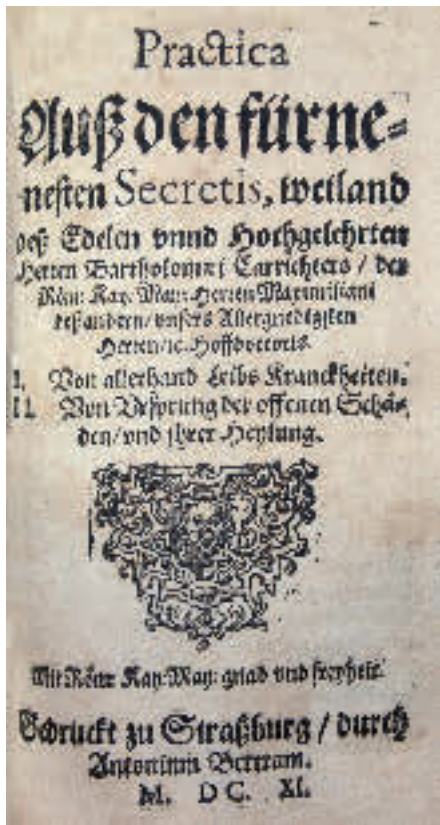 Practica
Auß den fürne-
nesten Secretis, weiland
deß Edelen vnnd Hochgelehrten
Herren Bartholomæi Carrichters / der
Röm: Kay: May: Herren Maximiliani
deß andern / vnsers Allergnedigsten
Herren / ꝛc. Hoffdoctoris.
I. Von allerhand Leibs Kranckheiten.
II. Von Vrsprung der offenen Schä-
den / vnd jhrer Heylung.
Mit Röm: Kay: May: gnad vnd freyheit.
Gedruckt zu Straßburg / durch
Antonium Bertram.
M. DC. XI.